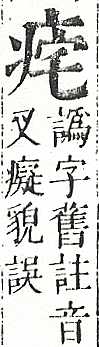 譌字舊註音
叉癡貌誤